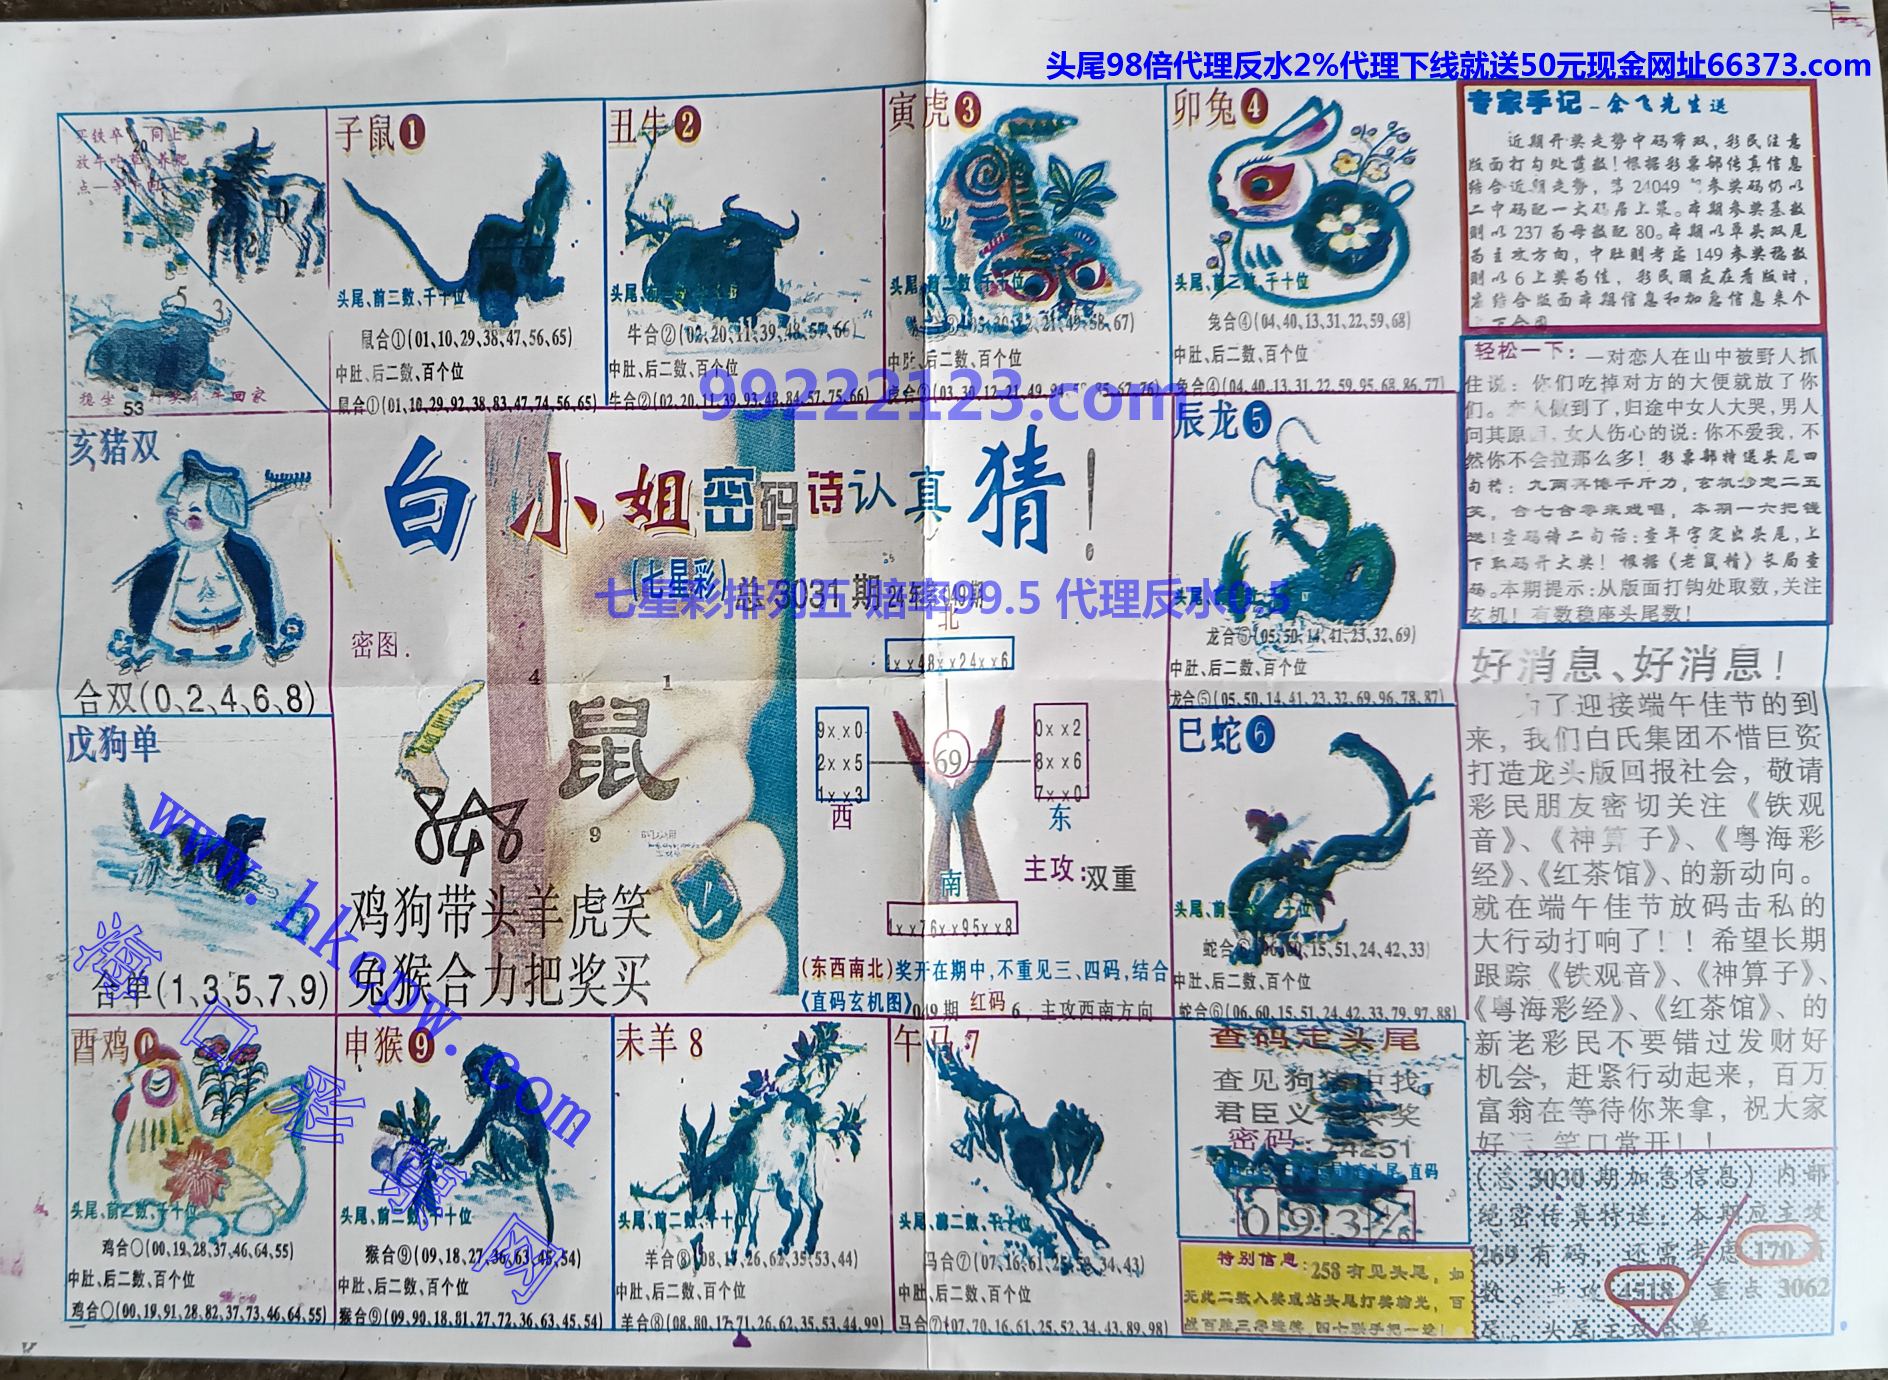 头尾98倍代理反水2%代理下线就送50元现金网址66373.com
买铁卒 同上
20
0
2
5
3
53
牛回家
子鼠1
头尾、前二数、千十位
鼠合①(01,10,29,38,47,56,65)
中肚、后二数、百个位
鼠合①(01,10,29,92,38,83,47,74,56,65)
丑牛2
牛合②(02,20,11,39,48,57,66)
中肚、后二数、百个位
牛合②(02,20,11,39,93,48,84,57,75,66)
寅虎3
中肚、后二数、百个位
卯兔4
头尾、前二数、千十位
兔合④(04,40,13,31,22,59,68)
中肚、后二数、百个位
兔合④(04,40,13,31,22,59,95,68,86,77)
99222123.com
专家手记-余飞先生送
近期开奖走势中码带双,彩民注意
版面打勾处苗数!根据彩票部传真信息
结合近期走势,第24049 参奖码仍以
二中码配一大码居上策。本期参奖基数
则以237为母数配80。本期以单头双尾
为主攻方向,中肚则考虑149参奖稳数
则以6上奖为佳,彩民朋友在看版时,
结合版面本期信息和加急信息来个
轻松一下:一对恋人在山中被野人抓
住说:你们吃掉对方的大便就放了你
们。恋人做到了,归途中女人大哭,男人
问其原因,女人伤心的说:你不爱我,不
然你不会拉那么多!彩票部特送头尾四
句猜:九两再馋千斤力,玄机沙定二五
笑,合七合零来戏唱,本期一六把钱
送!查码诗二句话:查年字定出头尾,上
下取码开大奖!根据《老鼠精》长局查
码。本期提示:从版面打钩处取数,关注
玄机!有数稳座头尾数!
亥猪双
合双(0,2,4,6,8)
白小姐密码诗认真猜!
(七星彩)总3031期
七星彩排列五 赔率99.5 代理反水0.5
密图.
4
1
鼠
9
848
鸡狗带头羊虎笑
兔猴合力把奖买
北
1xx48xx24xx6
9xx0
2xx5
1xx3
西
69
0xx2
8xx6
7xx0
东
南
主攻:双重
1xx76xx95xx8
(东西南北)奖开在期中,不重见三、四码,结合
《直码玄机图》049期 红码6,主攻西南方向
辰龙5
龙合⑤(05,50,14,41,23,32,69)
中肚、后二数、百个位
龙合⑤(05,50,14,41,23,32,69,96,78,87)
巳蛇6
蛇合⑥(06,60,15,51,24,42,33)
中肚、后二数、百个位
蛇合⑥(06,60,15,51,24,42,33,79,97,88)
好消息、好消息!
为了迎接端午佳节的到
来,我们白氏集团不惜巨资
打造龙头版回报社会,敬请
彩民朋友密切关注《铁观
音》、《神算子》、《粤海彩
经》、《红茶馆》、的新动向。
就在端午佳节放码击私的
大行动打响了!!希望长期
跟踪《铁观音》、《神算子》、
《粤海彩经》、《红茶馆》、的
新老彩民不要错过发财好
机会,赶紧行动起来,百万
富翁在等待你来拿,祝大家
好运,笑口常开!!
戊狗单
合单(1,3,5,7,9)
www.hkcpw.com
海口彩票网
酉鸡0
头尾、前二数、千十位
鸡合〇(00,19,28,37,46,64,55)
中肚、后二数、百个位
鸡合〇(00,19,91,28,82,37,73,46,64,55)
申猴9
头尾、前二数、千十位
猴合⑨(09,18,27,36,63,45,54)
中肚、后二数、百个位
猴合⑨(09,90,18,81,27,72,36,63,45,54)
未羊8
头尾、前二数、千十位
羊合⑧(08,17,26,62,35,53,44)
中肚、后二数、百个位
羊合⑧(08,80,17,71,26,62,35,53,44,99)
午马7
头尾、前二数、千十位
马合⑦(07,16,61,25,52,34,43)
中肚、后二数、百个位
马合⑦(07,70,16,61,25,52,34,43,89,98)
查码走头尾
查见狗猪中找,
君臣义 奖
密码: 24251
头尾,直码
093
特别信息:258有见头尾,如
无此二数入奖或站头尾打奖输光,百
战百胜三零送奖,四七联手把一边!
(总3030期加急信息)内部
绝密传真特送,本期应主攻
269有码,还需考虑170
数。 4518 重点3062
尾。头尾主攻合单.